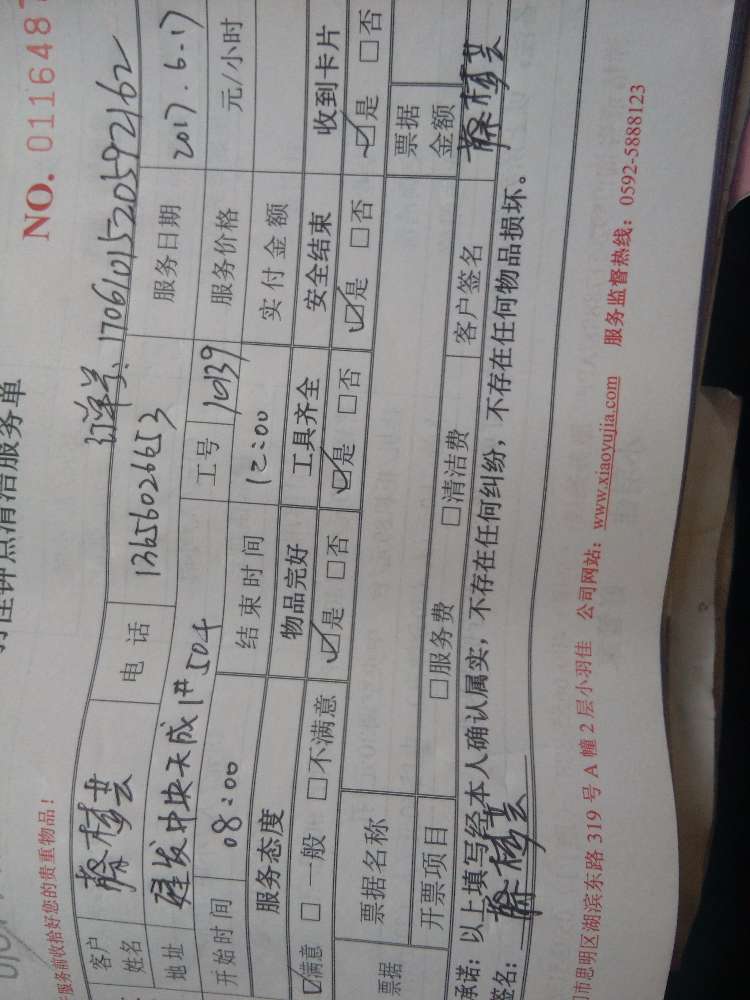 NO. 0116487
钟点清洁服务单
服务前收拾好您的贵重物品!
订单号、1706101520592162
客户姓名
电 话 13656026653
服务日期 2017.6.17
地址 建发中央天成1#504
工号 10139
服务价格 元/小时
开始时间 08:00
结束时间 12:00
实付金额
服务态度 物品完好 工具齐全 安全结束 收到卡片
☑满意 □一般 □不满意 ☑是 □否 ☑是 □否 ☑是 □否 ☑是 □否
票据 票据名称 票据金额
开票项目 □服务费 □清洁费 客户签名
承诺:以上填写经本人确认属实,不存在任何纠纷,不存在任何物品损坏。
签名:
市思明区湖滨东路 319 号 A 幢 2 层小羽佳 公司网站:www.xiaoyujia.com 服务监督热线:0592-5888123